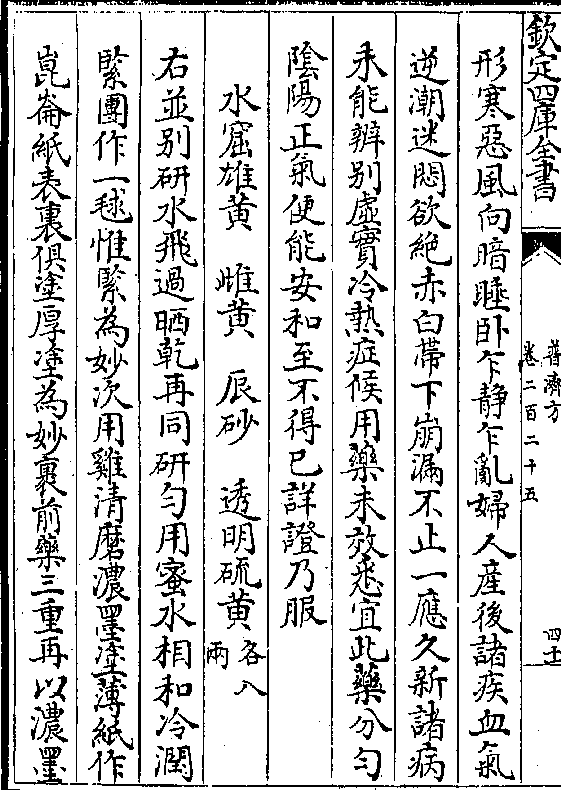 欽定四庫全書
普濟方
卷二百二十五
形寒惡風向暗睡卧乍靜乍亂婦人產後諸疾血氣
逆潮迷悶欲絶赤白帶下崩漏不止一應久新諸病
未能辨别虛實冷熱症候用藥未效悉宜此藥分勻
陰陽正氣便能安和至不得已詳證乃服
水窟雄黃　雌黃　辰砂　透明硫黃各八兩
右並别研水飛過晒乾再同研勻用蜜水相和冷潤
緊團作一毬惟緊為妙次用雞清磨濃墨塗薄紙作
崑崙紙表裏俱塗厚塗為妙裹前藥三重再以濃墨